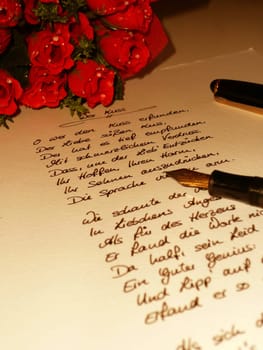 Der Kuss
O wer den Kuss erfunden,
Der Liebe süßen Kuss,
Der hat es tief empfunden
Mit schmerzlichem Verdruss
Dass, um der Zeit Entzücken
Ihr Hoffen, Ihren Harm,
Ihr Sehnen auszudrücken
Die Sprache arm.
Wie schaute der
In Liebchens Auge
Als für des Herzens
Er fand die Worte nicht
Da half, sein Leid
Ein guter Genius.
Und Lipp auf
Erfand er so
Als sich